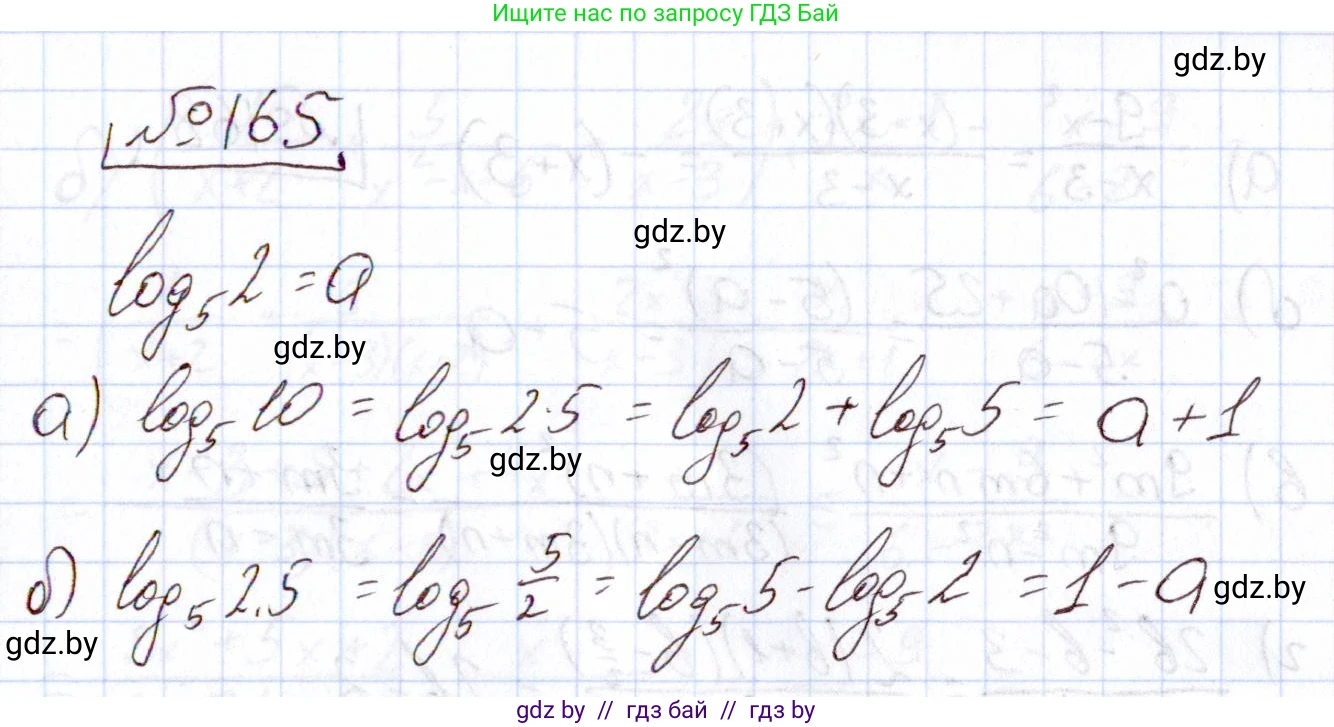 Ищите нас по запросу ГДЗ Бай
gdz.by
№165
gdz.by
log₅2 = a
gdz.by
а) log₅10 = log₅2·5 = log₅2 + log₅5 = a + 1
gdz.by
б) log₅2.5 = log₅ 5/2 = log₅5 - log₅2 = 1 - a
gdz.by
gdz.by
gdz by // гдз бай // гдз by